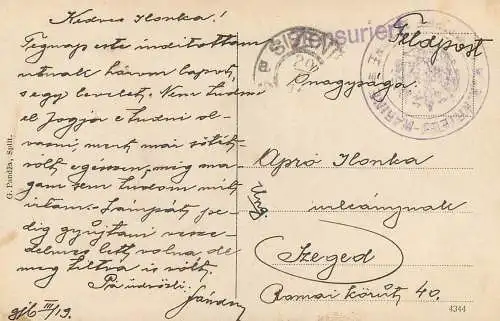 Kedves Ilonka!
Tegnap este indítottam
útnak három lapot,
s egy levelet. Nem tudom
el fogja-e tudni ol-
vasni, mert már sötét
volt egészen, még ma-
gam sem tudom mit
írtam. Lámpát pe-
dig gyújtani vesze-
delmes lett volna de
meg tiltva is volt.
Pá üdvözli:
Sándor
916 III/19.
G. Pandža, Split.
Zensuriert
Feldpost
Őnagysága
Apró Ilonka
Ung.
úrleánynak
Szeged
Római körút 40.
4344